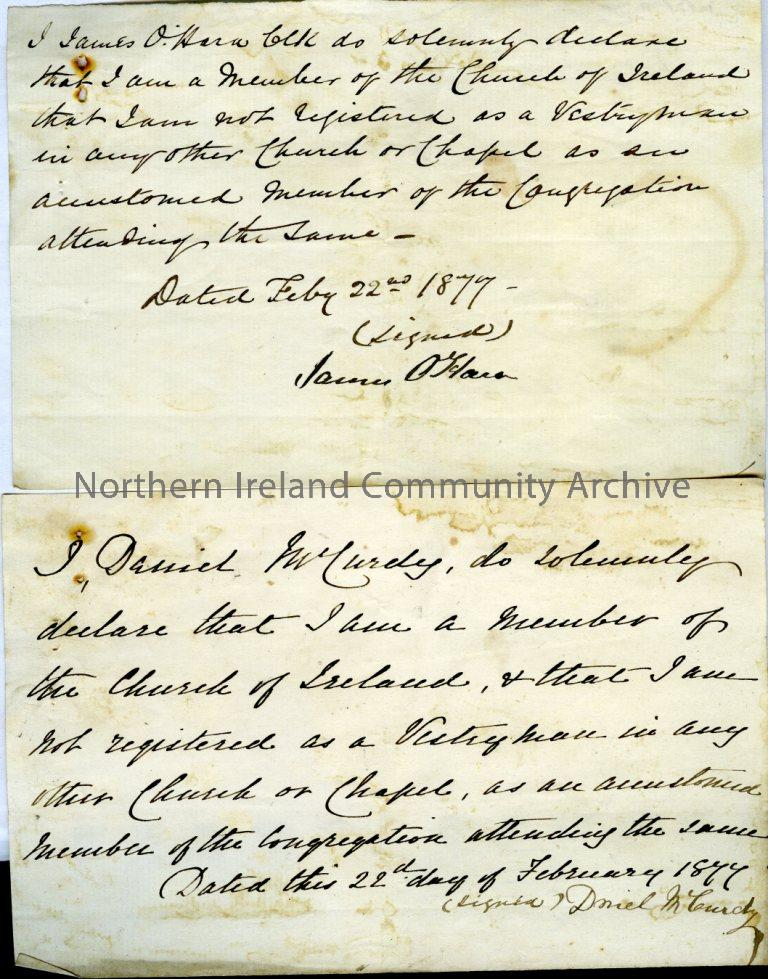 I James O'Hara Clk do solemnly declare
that I am a Member of the Church of Ireland
that I am not registered as a Vestryman
in any other Church or Chapel as an
accustomed Member of the Congregation
attending the same –
Dated Feby 22nd 1877 –
(signed)
James O'Hara
Northern Ireland Community Archive
I, Daniel McCurdy, do solemnly
declare that I am a member of
the Church of Ireland, & that I am
not registered as a Vestryman in any
other Church or Chapel, as an accustomed
Member of the Congregation attending the same
Dated this 22d day of February 1877
(signed) Daniel McCurdy